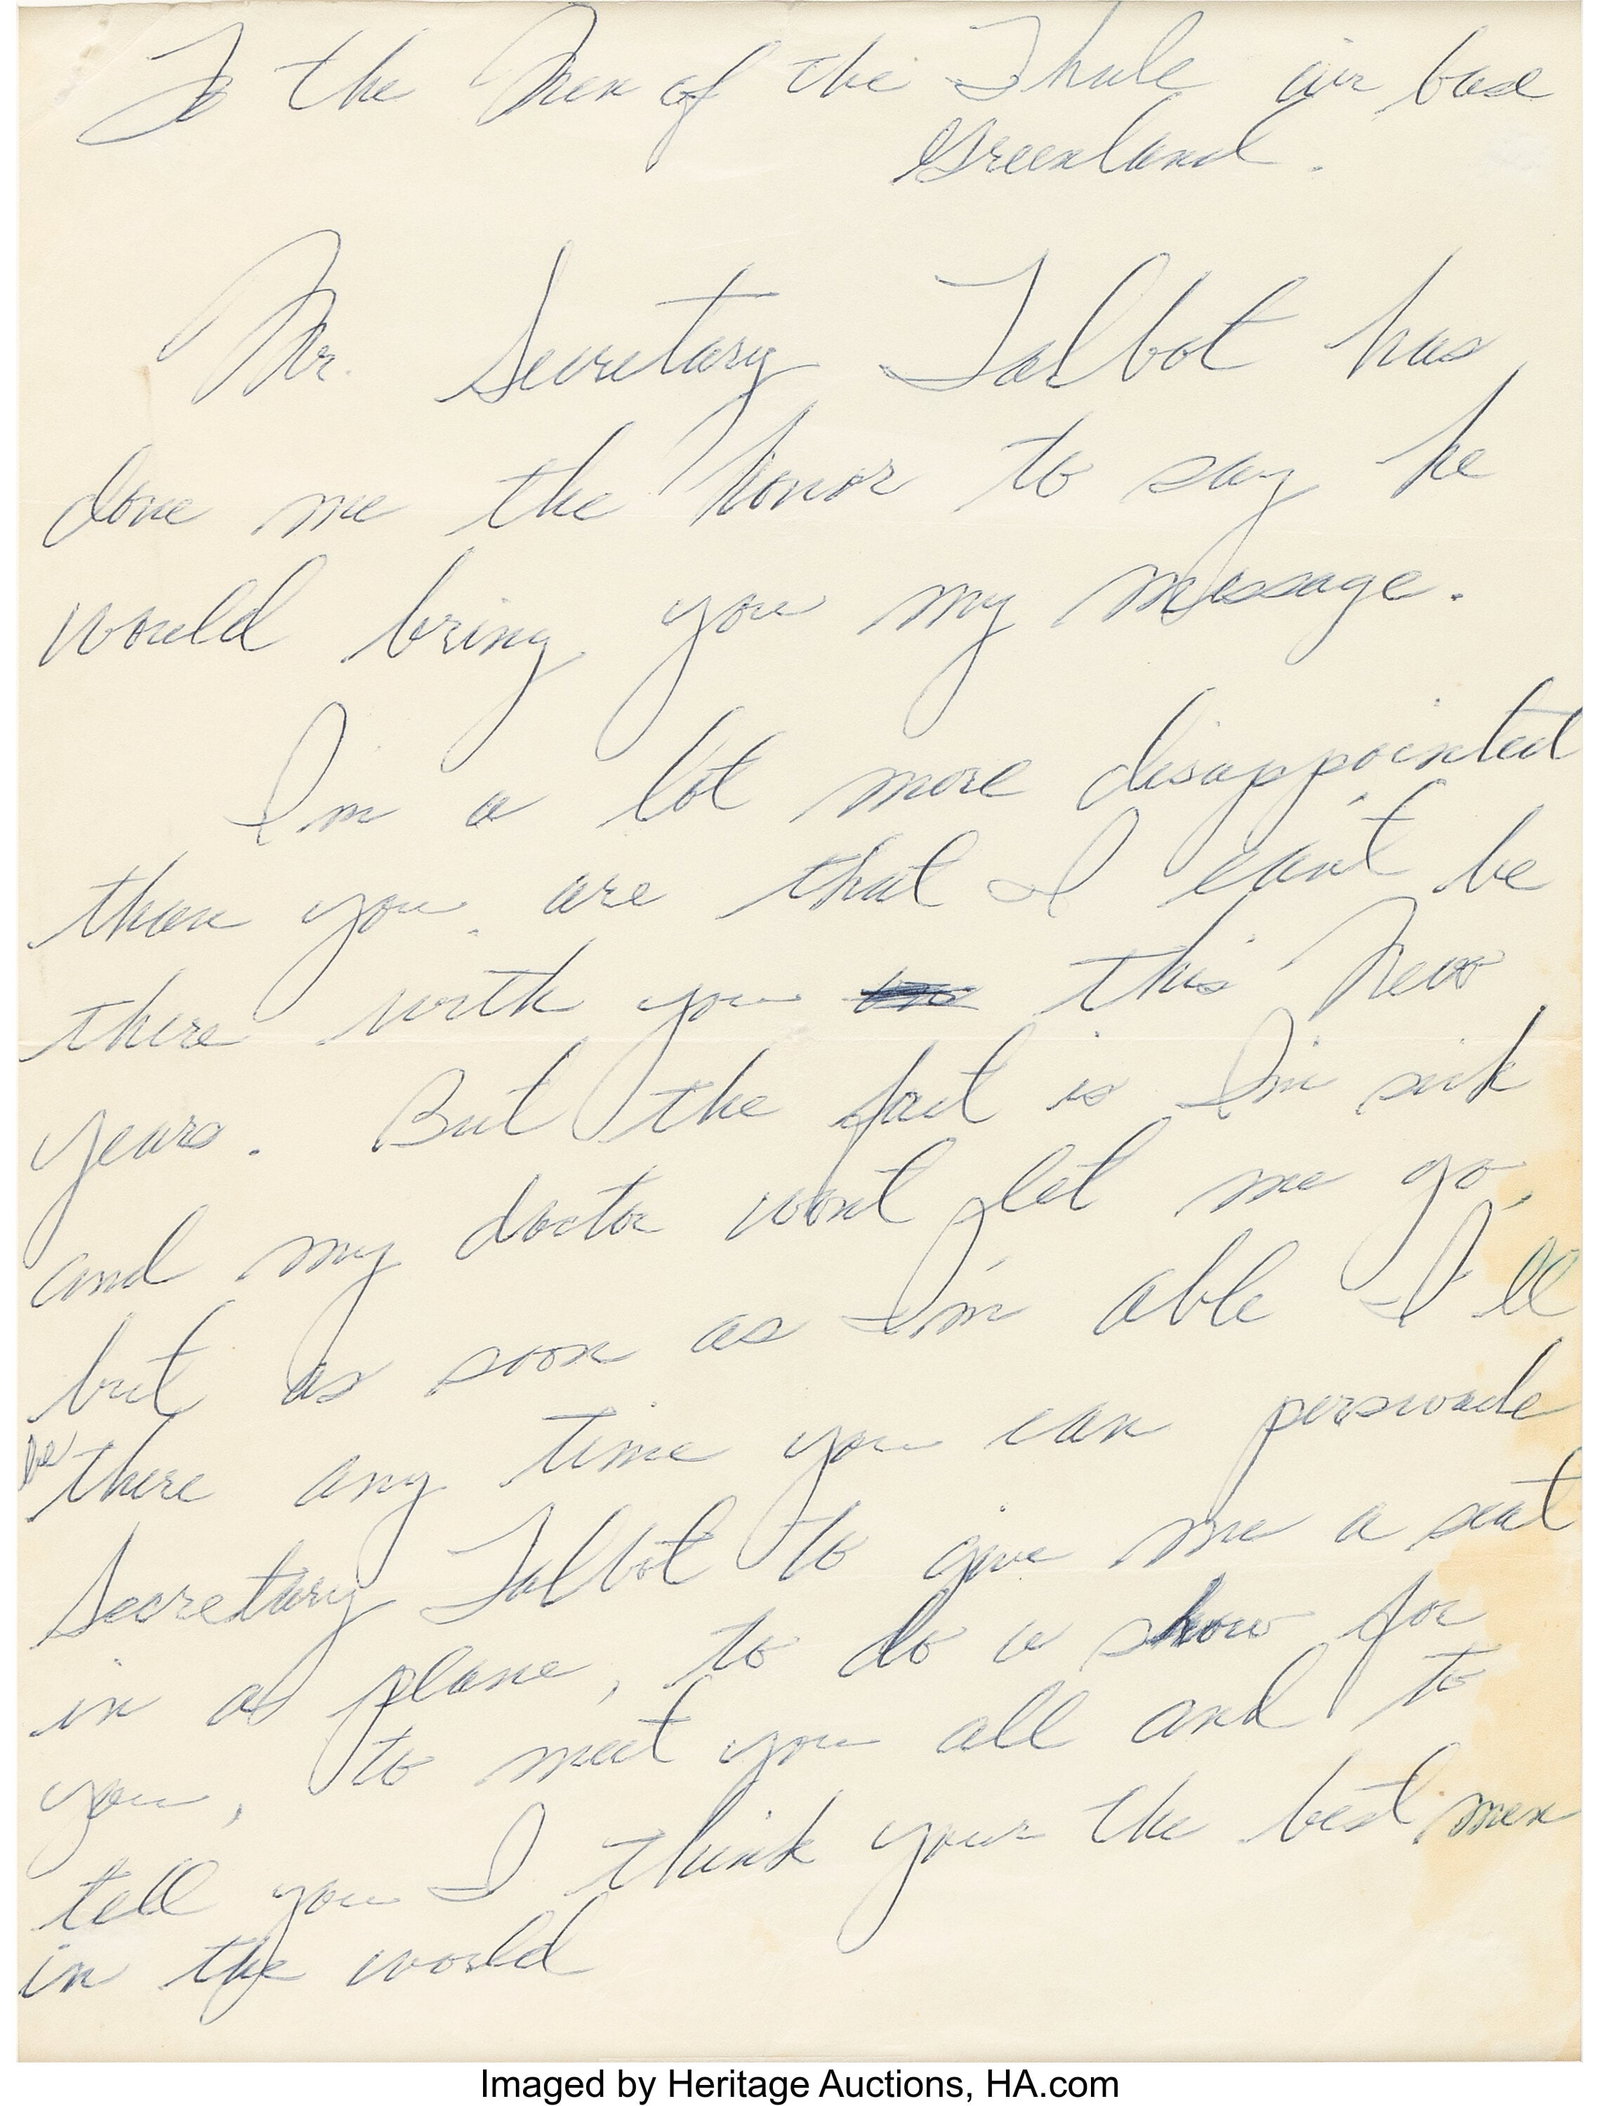 To the Men of the Thule air base
Greenland.
Mr. Secretary Talbot has
done me the honor to say he
would bring you my message.
I'm a lot more disappointed
than you are that I can't be
there with you this New
years. But the fact is I'm sick
and my doctor wont let me go,
but as soon as I'm able I'll
be there any time you can perswade
Secretary Talbot to give me a seat
in a plane, to do a show for
you, to meet you all and to
tell you I think your the best men
in the world
Imaged by Heritage Auctions, HA.com